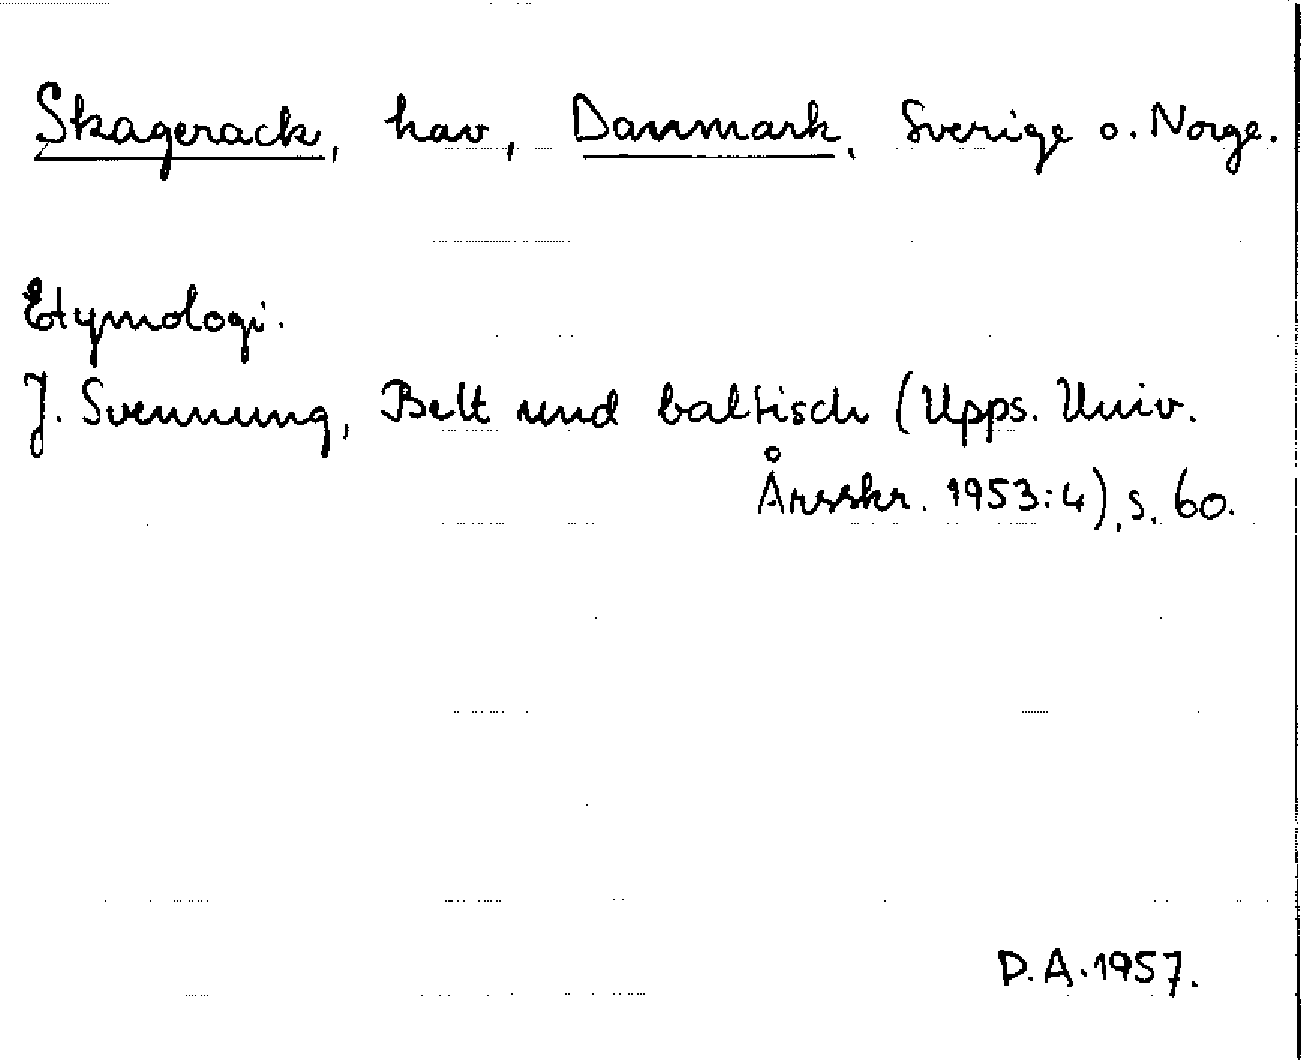 Skagerack, hav, Danmark, Sverige o. Norge.
Etymologi.
J. Svennung, Belt und baltisch (Upps. Univ.
Årsskr. 1953:4), s. 60.
D.A. 1957.